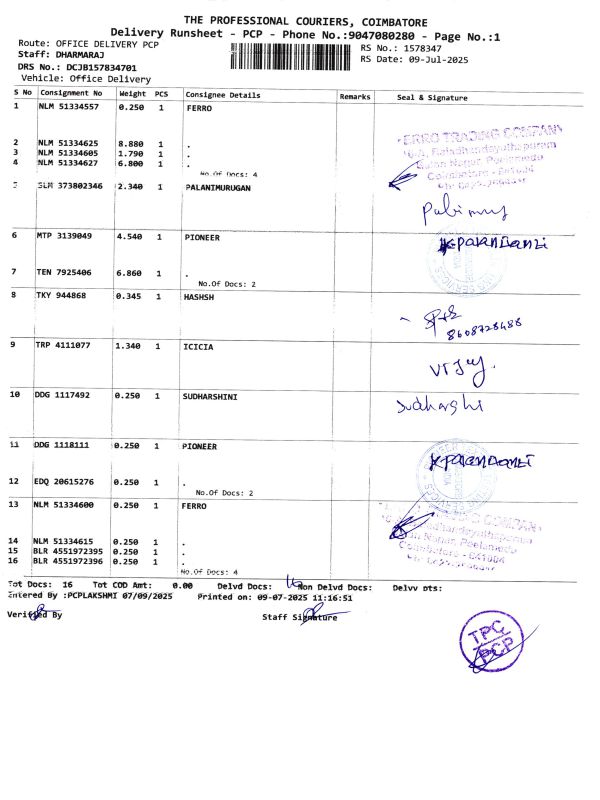 THE PROFESSIONAL COURIERS, COIMBATORE
Delivery Runsheet - PCP - Phone No.:9047080280 - Page No.:1
Route: OFFICE DELIVERY PCP
RS No.: 1578347
Staff: DHARMARAJ
RS Date: 09-Jul-2025
DRS No.: DCJB157834701
Vehicle: Office Delivery
S No Consignment No Weight PCS Consignee Details Remarks Seal & Signature
1 NLM 51334557 0.250 1 FERRO
2 NLM 51334625 8.880 1 .
3 NLM 51334605 1.790 1 .
4 NLM 51334627 6.800 1 .
No.Of Docs: 4
FERRO TRADING COMPANY
Coimbatore - 641004
5 SLM 373802346 2.340 1 PALANIMURUGAN
6 MTP 3139049 4.540 1 PIONEER
7 TEN 7925406 6.860 1 .
No.Of Docs: 2
8 TKY 944868 0.345 1 HASHSH
8608728488
9 TRP 4111077 1.340 1 ICICIA
vijay.
10 DDG 1117492 0.250 1 SUDHARSHINI
Sudharshi
11 DDG 1118111 0.250 1 PIONEER
12 EDQ 20615276 0.250 1 .
No.Of Docs: 2
13 NLM 51334600 0.250 1 FERRO
14 NLM 51334615 0.250 1 .
15 BLR 4551972395 0.250 1 .
16 BLR 4551972396 0.250 1 .
No.Of Docs: 4
Coimbatore - 641004
Tot Docs: 16 Tot COD Amt: 0.00 Delvd Docs: 16 Non Delvd Docs: Delvv pts:
Entered By :PCPLAKSHMI 07/09/2025 Printed on: 09-07-2025 11:16:51
Verified By Staff Signature
TPC
PCP